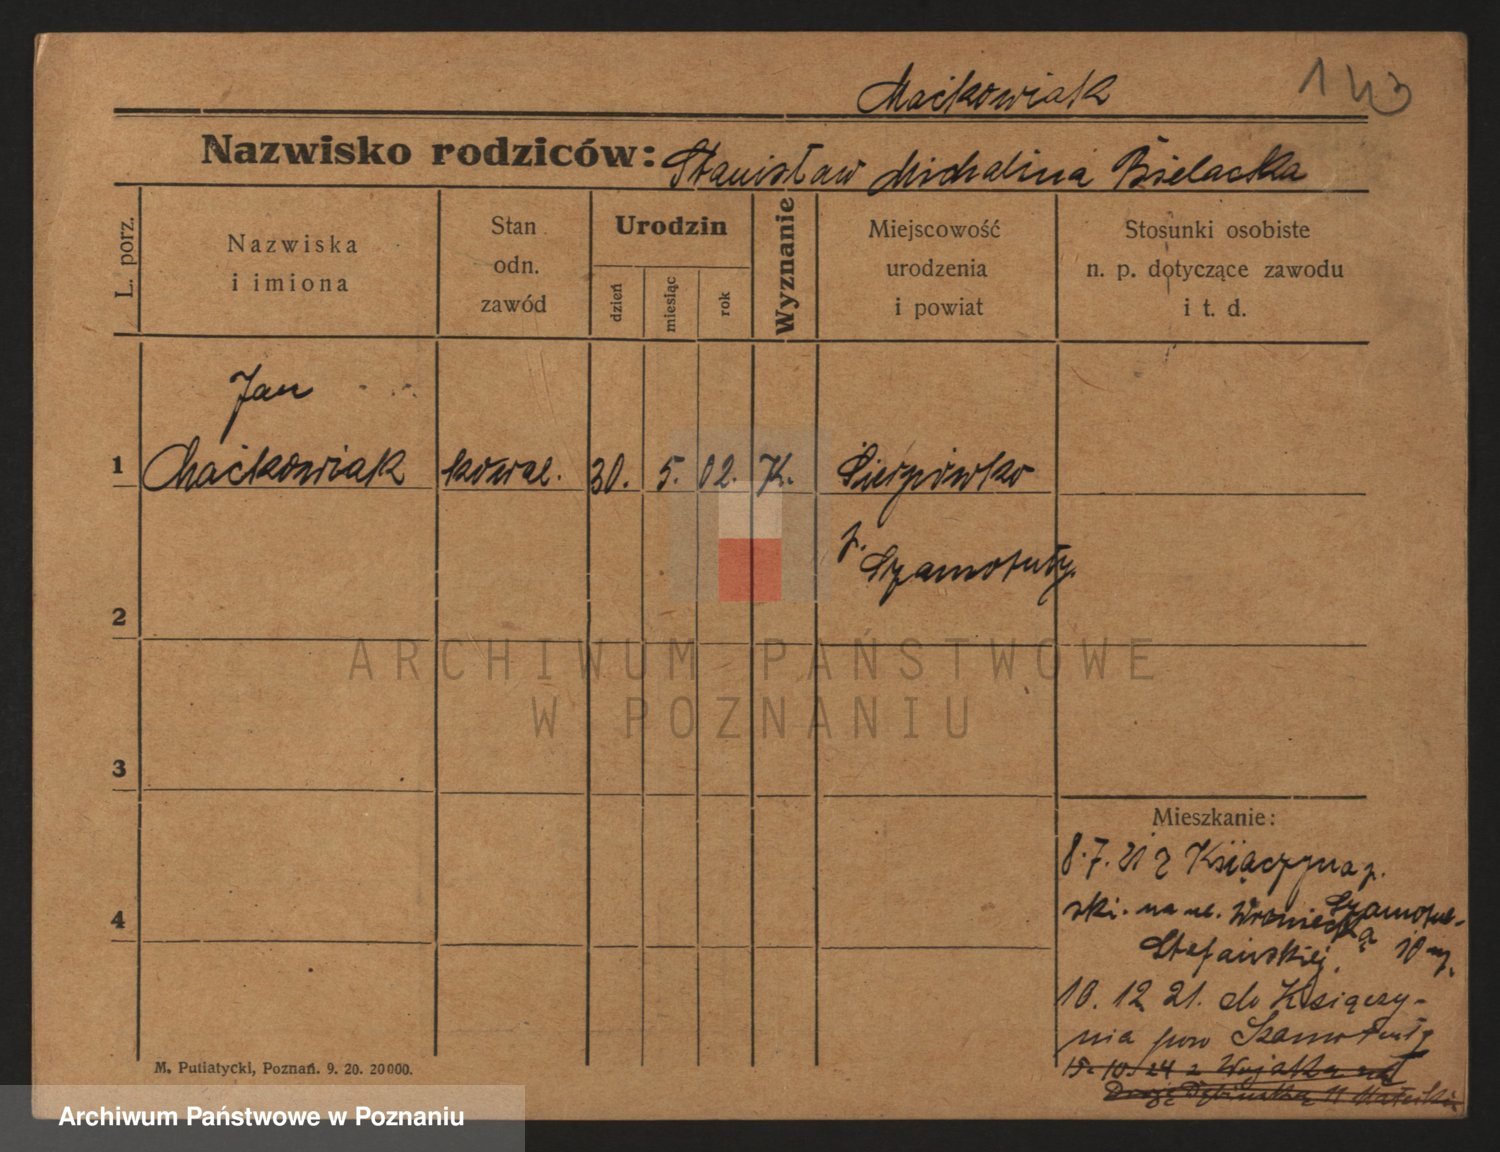 Maćkowiak 143
Nazwisko rodziców: Stanisław Michalina Bielacka
L. porz.
Nazwiska
i imiona
Stan
odn.
zawód
Urodzin
dzień
miesiąc
rok
Wyznanie
Miejscowość
urodzenia
i powiat
Stosunki osobiste
n. p. dotyczące zawodu
i t. d.
Jan
1 Maćkowiak kowal. 30. 5. 02. K.
p.
Szamotuły.
2
ARCHIWUM PAŃSTWOWE
W POZNANIU
3
Mieszkanie:
8.7.21 z p.
Szamotul-
ski. na ul. Wroniecką 10
10. 12 21. do Książy-
nia pow Szamotuły
15. 10. 24 z
Drogę Dębińską 11
4
M. Putiatycki, Poznań. 9. 20. 20000.
Archiwum Państwowe w Poznaniu